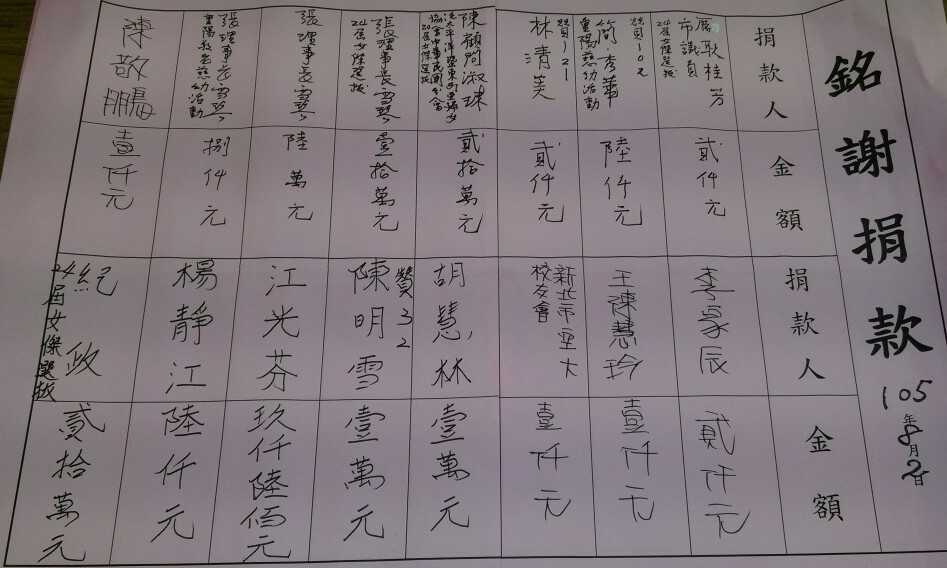 銘謝捐款
105年8月2日
捐款人
厲耿桂芳
市議員
24屆女傑選拔
贊102
簡秀華
重陽慈幼活動
贊121
林清美
陳顧問淑珠
泛太平洋暨東南亞婦女
協會中華民國分會
24屆女傑選拔
張理事長雪琴
24屆女傑選拔
張理事長雪琴
張理事長雪琴
重陽敬老慈幼活動
陳敬鵬
金額
貳仟元
陸仟元
貳仟元
貳拾萬元
壹拾萬元
陸萬元
捌仟元
壹仟元
捐款人
李家辰
王陳慧玲
新北市空大
校友會
胡慧林
贊32
陳明雪
江光芬
楊靜江
紀政
24屆女傑選拔
金額
貳仟元
壹仟元
壹仟元
壹萬元
壹萬元
玖仟陸佰元
陸仟元
貳拾萬元